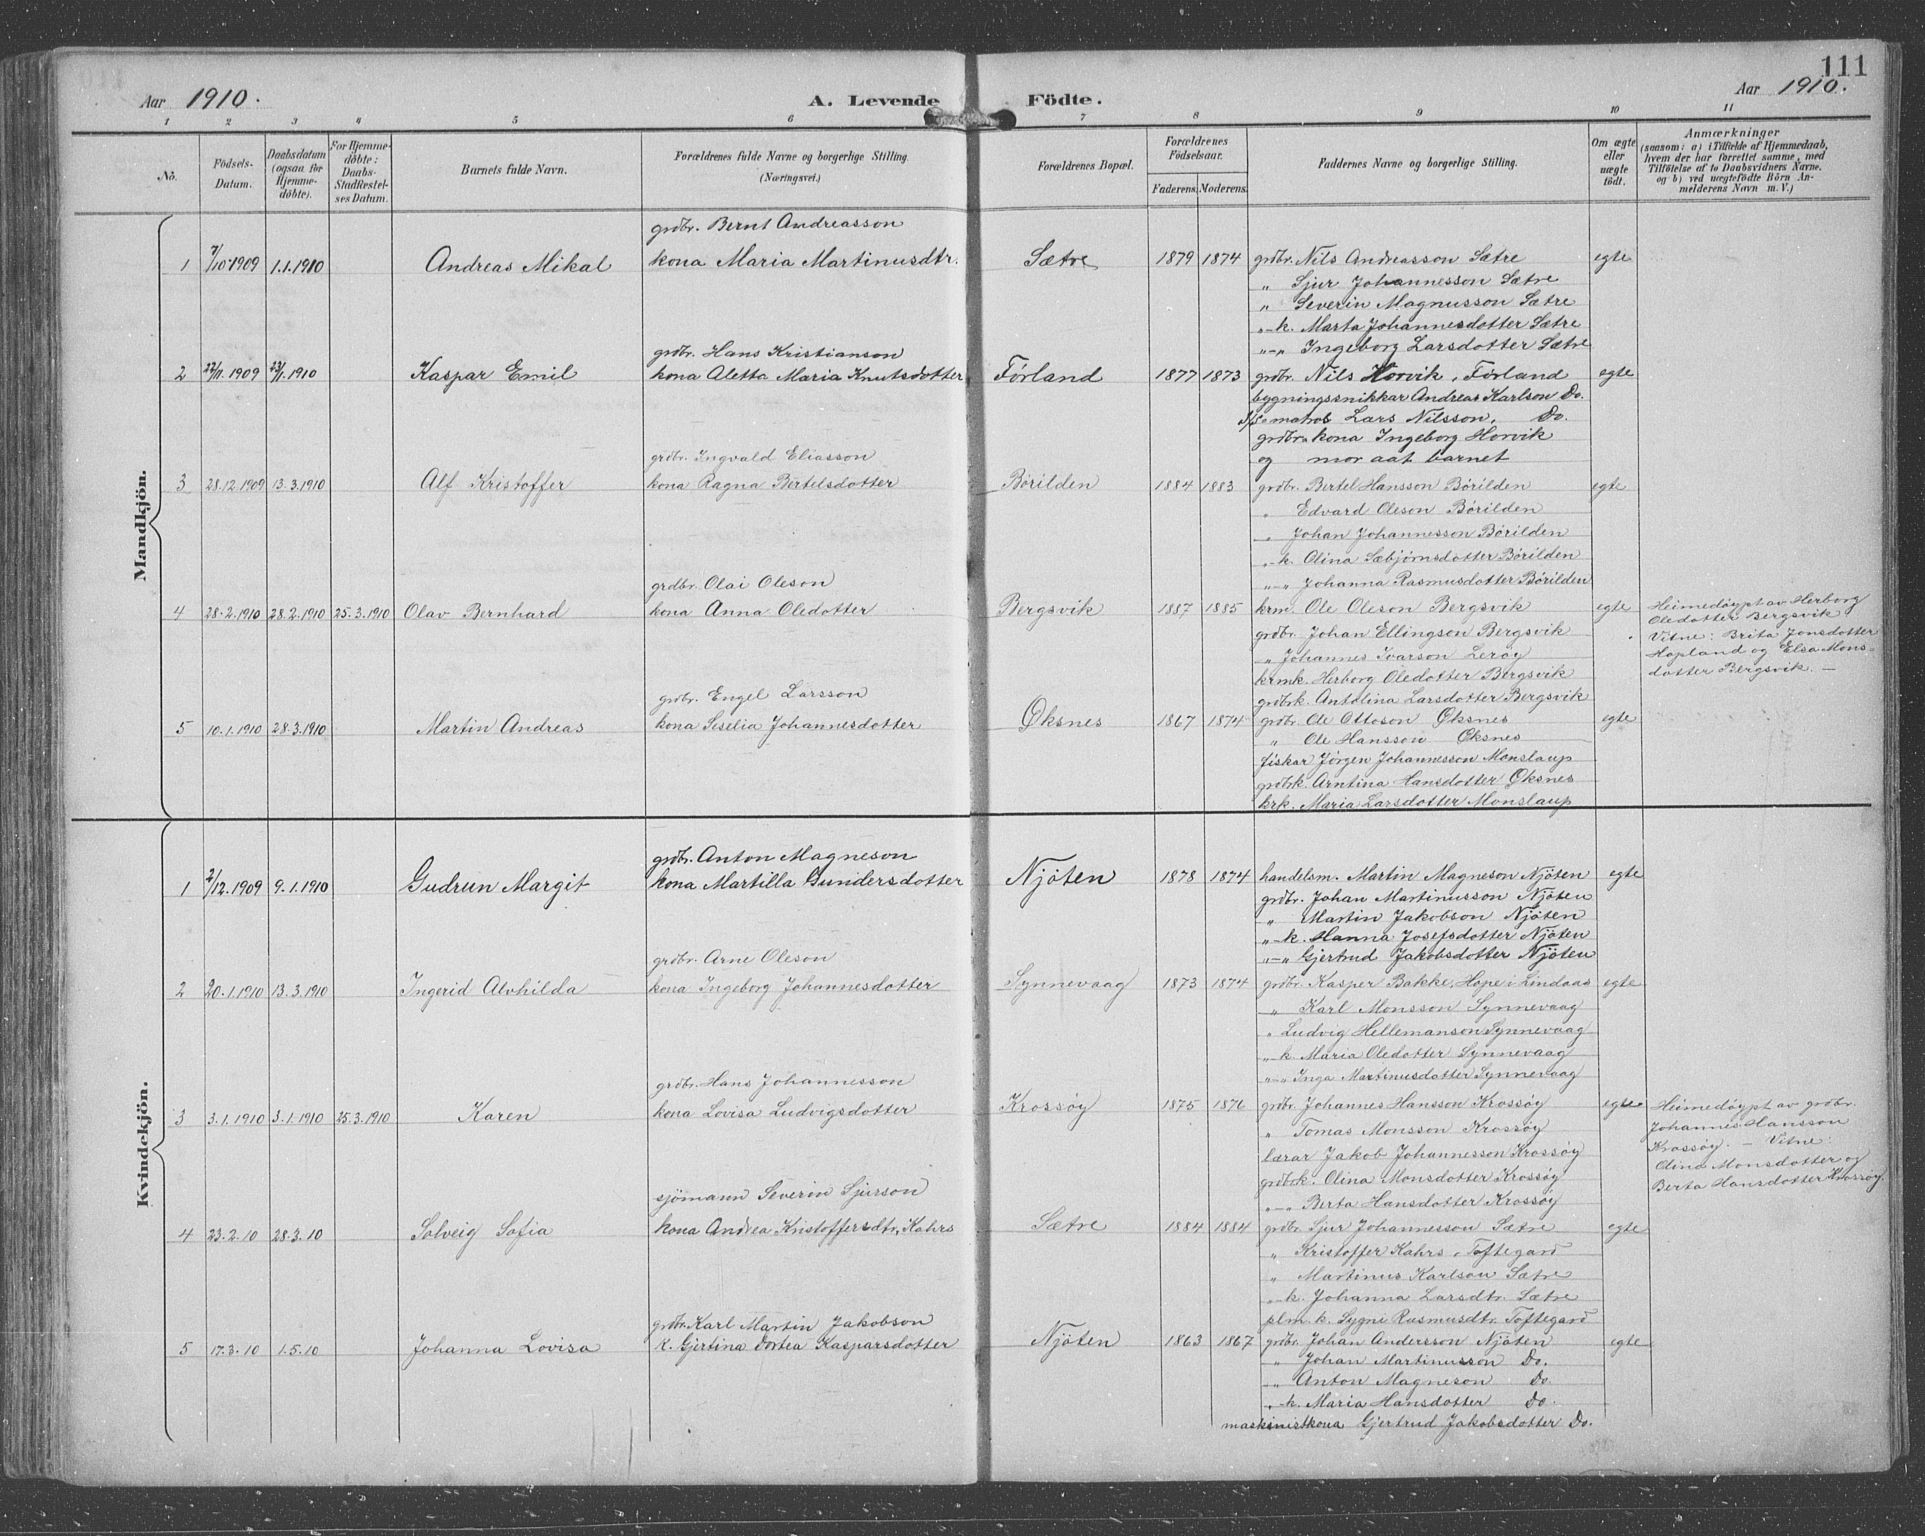 111
Aar 1910.
A. Levende Födte.
Aar 1910.
1 2 3 4 5 6 7 8 9 10 11
No.
Födsels-Datum.
Daabsdatum (ogsaa for Hjemme-döbte).
For Hjemme-döbte: Daabs-Stadfæstel-ses Datum.
Barnets fulde Navn.
Forældrenes fulde Navne og borgerlige Stilling.
(Næringsvei.)
Forældrenes Bopæl.
Forældrenes Födselsaar.
Faderens. Moderens.
Faddernes Navne og borgerlige Stilling.
Om ægte eller uægte födt.
Anmærkninger
(saasom: a) i Tilfælde af Hjemmedaab,
hvem der har forrettet samme, med
Tilföielse af to Daabsvidners Navne.
og b) ved uægtefödte Börn An-
melderens Navn m. V.)
Mandkjön.
grdbr. Bernt Andreasson
1 7/10 1909 1.1.1910 Andreas Mikal kona Maria Martinusdtr. Sætre 1879 1874 grdbr. Nils Andreasson Sætre egte
„ Sjur Johannesson Sætre
„ Severin Magnusson Sætre
„-k. Marta Johannesdotter Sætre
„-„ Ingeborg Larsdotter Sætre
grdbr. Hans Kristianson
2 22/11. 1909 23/1. 1910 Kaspar Emil kona Aletta Maria Knutsdotter Förland 1877 1873 grdbr. Nils Horvik, Förland egte
bygningssnikkar Andreas Karlson Do.
matros Lars Nilsson, Do.
grdbr. kona Ingeborg Horvik
og mor aat barnet
grdbr. Ingvald Eliasson
3 28.12.1909 13.3.1910 Alf Kristoffer kona Ragna Bertelsdotter Börilden 1884 1883 grdbr. Bertel Hansson Börilden egte
„ Edvard Oleson Börilden
„ Johan Johannesson Börilden
„-k. Olina Sæbjørnsdotter Börilden
„-„ Johanna Rasmusdotter Börilden
grdbr. Olai Oleson
4 28.2.1910 28.2.1910 25.3.1910 Olav Bernhard kona Anna Oledotter Bergsvik 1887 1885 krm. Ole Oleson Bergsvik egte Heimedöypt av Herborg
Oledotter Bergsvik
grdbr. Johan Ellingson Bergsvik Vitne: Brita Jonsdotter
„ Johannes Ivarson Leröy Hopland og Elsa Mons-
krmk. Herborg Oledotter Bergsvik dotter Bergsvik. –
grdbrk. Antolina Larsdotter Bergsvik
grdbr. Engel Larsson
5 10.1.1910 28.3.1910 Martin Andreas kona Seselia Johannesdotter Øksnes 1867 1874 grdbr. Ole Ottoson Øksnes egte
„ Ole Hansson Øksnes
fiskar Jörgen Johannesson Monslaup
grdbrk. Arntina Hansdotter Øksnes
krk. Maria Larsdotter Monslaup
Kvindekjön.
grdbr. Anton Magneson
1 2/12. 1909 9.1.1910 Gudrun Margit kona Martilla Gundersdotter Njöten 1878 1874 handelsm. Martin Magneson Njöten egte
grdbr. Johan Martinusson Njöten
„ Martin Jakobson Njöten
„-k. Hanna Josefsdotter Njöten
„-„ Gjertrud Jakobsdotter Njöten
grdbr. Arne Oleson
2 20.1.1910 13.3.1910 Ingerid Alvhilda kona Ingeborg Johannesdotter Synnevaag 1873 1874 grdbr. Kasper Bakke, Hope i Lindaas egte
„ Karl Monsson Synnevaag
„ Ludvig Hellemanson Synnevaag
„-k. Maria Oledotter Synnevaag
„-„ Inga Martinusdotter Synnevaag
grdbr. Hans Johannesson
3 3.1.1910 3.1.1910 25.3.1910 Karen kona Lovisa Ludvigsdotter Krossöy 1875 1876 grdbr. Johannes Hansson Krossöy egte Heimedöypt av grdbr.
„ Tomas Monsson Krossöy Johannes Hansson
lærar Jakob Johannesson Krossöy Krossöy. – Vitne:
grdbrk. Olina Monsdotter Krossöy Olina Monsdotter og
„-„ Berta Hansdotter Krossöy Berta Hansdotter Krossöy.
sjömann Severin Sjurson
4 23.2.10 28.3.10 Solveig Sofia kona Andrea Kristoffersdtr. Kahrs Sætre 1884 1884 grdbr. Sjur Johannesson Sætre egte
„ Kristoffer Kahrs, Toftegard
„ Martinus Karlson Sætre
„-k. Johanna Larsdtr. Sætre
plm. k. Sygni Rasmusdtr. Toftegard
grdbr. Karl Martin Jakobson
5 17.3.10 1.5.10 Johanna Lovisa k. Gjertina Dortea Kasparsdotter Njöten 1863 1867 grdbr. Johan Andersson Njöten egte
„ Johan Martinusson Do.
„ Anton Magneson Do.
„-k. Maria Hansdotter Do.
maskinistkona Gjertrud Jakobsdotter Do.